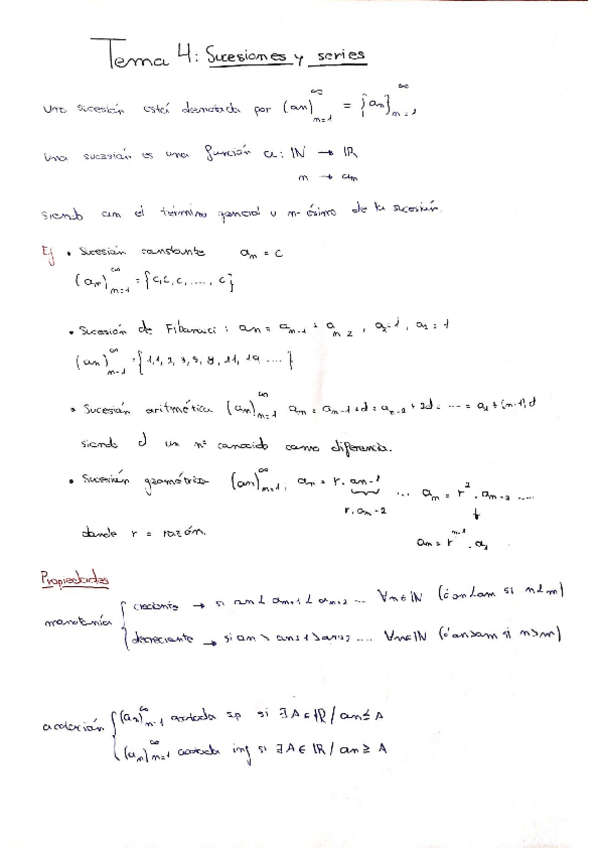 Tema 4: Sucesiones y series
Una sucesión está denotada por (an)_{n=1}^∞ = {an}_{n=1}^∞
Una sucesión es una función a: ℕ → ℝ
n → an
siendo an el término general o n-ésimo de la sucesión.
Ej • Sucesión constante a_n = c
(a_n)_{n=1}^∞ = {c, c, c, ...., c}
• Sucesión de Fibonacci: an = a_{n-1} + a_{n-2}, a_2=1, a_1=1
(an)_{n=1}^∞ = {1, 1, 2, 3, 5, 8, 11, 19 ....}
• Sucesión aritmética (an)_{n=1}^∞ a_n = a_{n-1}+d = a_{n-2} + 2d = ... = a_1 + (n-1)d
siendo d un nº conocido como diferencia.
• Sucesión geométrica (an)_{n=1}^∞, a_n = r · a_{n-1} ... a_n = r^2 · a_{n-2} ....
r · a_{n-2} ↓
donde r = razón. a_n = r^{n-1} · a_1
Propiedades
monotonía { creciente → si an < an+1 < an+2 ... ∀n∈ℕ (ó an<am si n<m)
decreciente → si an > an+1 > an+2 .... ∀n∈ℕ (ó an>am si n>m)
acotación { (an)_{n=1}^∞ acotada sp si ∃A∈ℝ / an ≤ A
(an)_{n=1}^∞ acotada inf si ∃A∈ℝ / an ≥ A